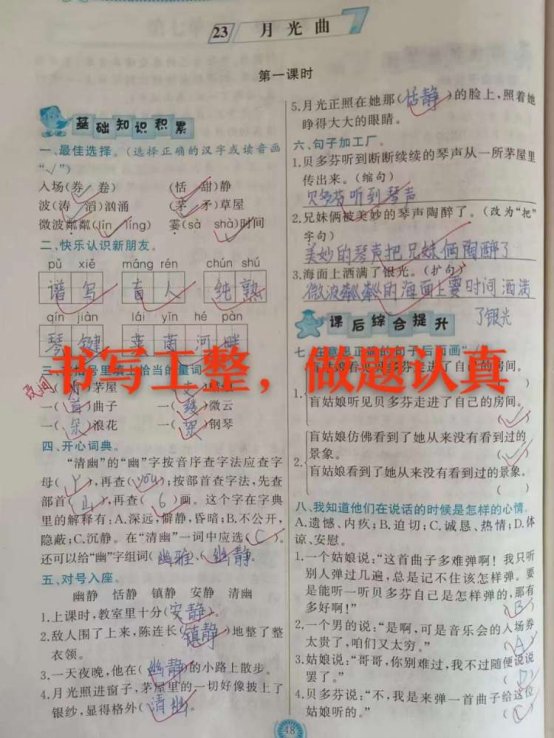 23 月光曲
第一课时
基础知识积累
一、最佳选择。(选择正确的汉字或读音画
“√”)
入场(券 卷) (恬 甜)静
波(涛 滔)汹涌 (茅 矛)草屋
微波粼粼(lín líng) 霎(sà shà)时间
二、快乐认识新朋友。
pǔ xiě máng rén chún shú
谱写 盲人 纯熟
qín jiàn lái yīn hé pàn
琴键 莱茵河畔
书写工整，做题认真
茅屋
一( )曲子 一( )微云
一( )浪花 一( )钢琴
四、开心词典。
“清幽”的“幽”字按音序查字法应查字
母(Y),再查(you);按部首查字法,先查
部首(山),再查(6)画。这个字在字典
里的解释有:A.深远,僻静,昏暗;B.不公开,
隐蔽;C.沉静。在“清幽”一词中应选(C)。
还可以给“幽”字组词(幽雅)(幽静)
五、对号入座。
幽静 恬静 镇静 安静 清幽
1.上课时,教室里十分(安静)。
2.敌人围了上来,陈连长(镇静)地整了整
衣领。
3.一天夜晚,他在(幽静)的小路上散步。
4.月光照进窗子,茅屋里的一切好像披上了
银纱,显得格外(清幽)
5.月光正照在她那(恬静)的脸上,照着她
睁得大大的眼睛。
六、句子加工厂。
1.贝多芬听到断断续续的琴声从一所茅屋里
传出来。(缩句)
贝多芬听到琴声
2.兄妹俩被美妙的琴声陶醉了。(改为“把”
字句)
美妙的琴声把兄妹俩陶醉了
3.海面上洒满了银光。(扩句)
微波粼粼的海面上霎时间洒满
了银光
课后综合提升
1.
盲姑娘听见贝多芬走进了自己的房间。
2.
盲姑娘仿佛看到了她从来没有看到过的
景象。
盲姑娘看到了她从来没有看到过的景象。
八、我知道他们在说话的时候是怎样的心情。
A.遗憾、内疚;B.迫切;C.诚恳、热情;D.体
谅、安慰。
1.一个姑娘说:“这首曲子多难弹啊！我只听
别人弹过几遍,总是记不住该怎样弹。要
是能听一听贝多芬自己是怎样弹的,那有
多好啊!” (B)
2.一个男的说:“是啊,可是音乐会的入场券
太贵了,咱们又太穷。” (A)
3.姑娘说:“哥哥,你别难过,我不过随便说说
罢了。” (D)
4.贝多芬说:“不,我是来弹一首曲子给这位
姑娘听的。”
48